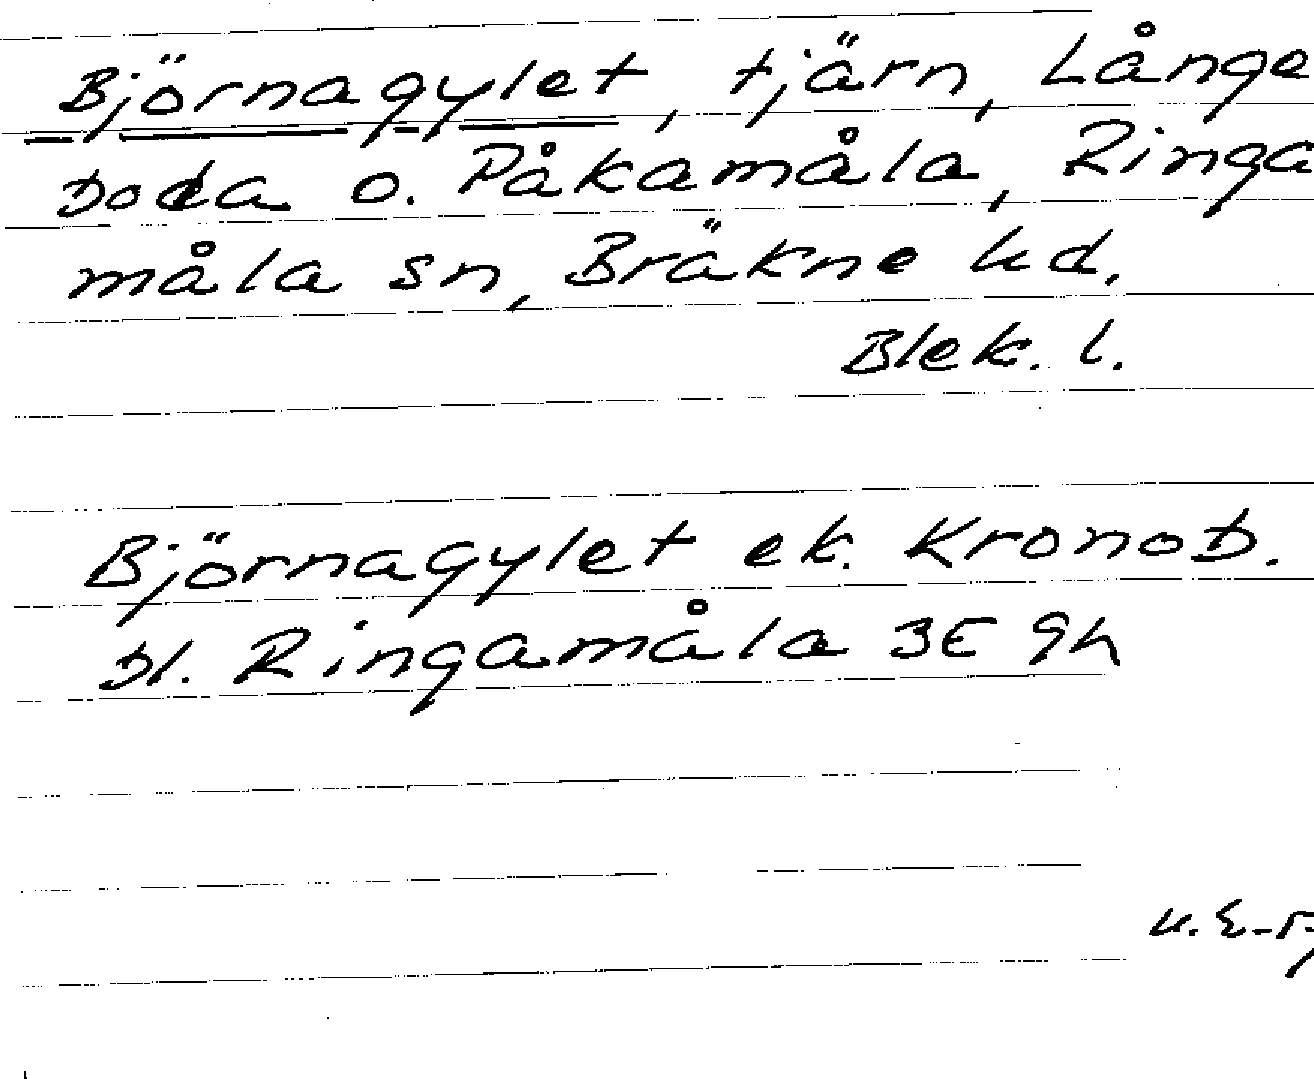 Björnagylet, tjärn, Långe
boda o. Påkamåla, Ringa
måla sn, Bräkne hd.
Blek. l.
Björnagylet ek. Kronob.
bl. Ringamåla 3E 9h